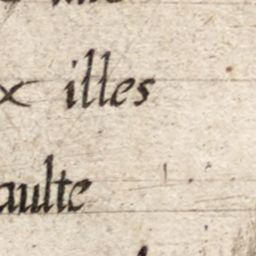 x illes
aulte